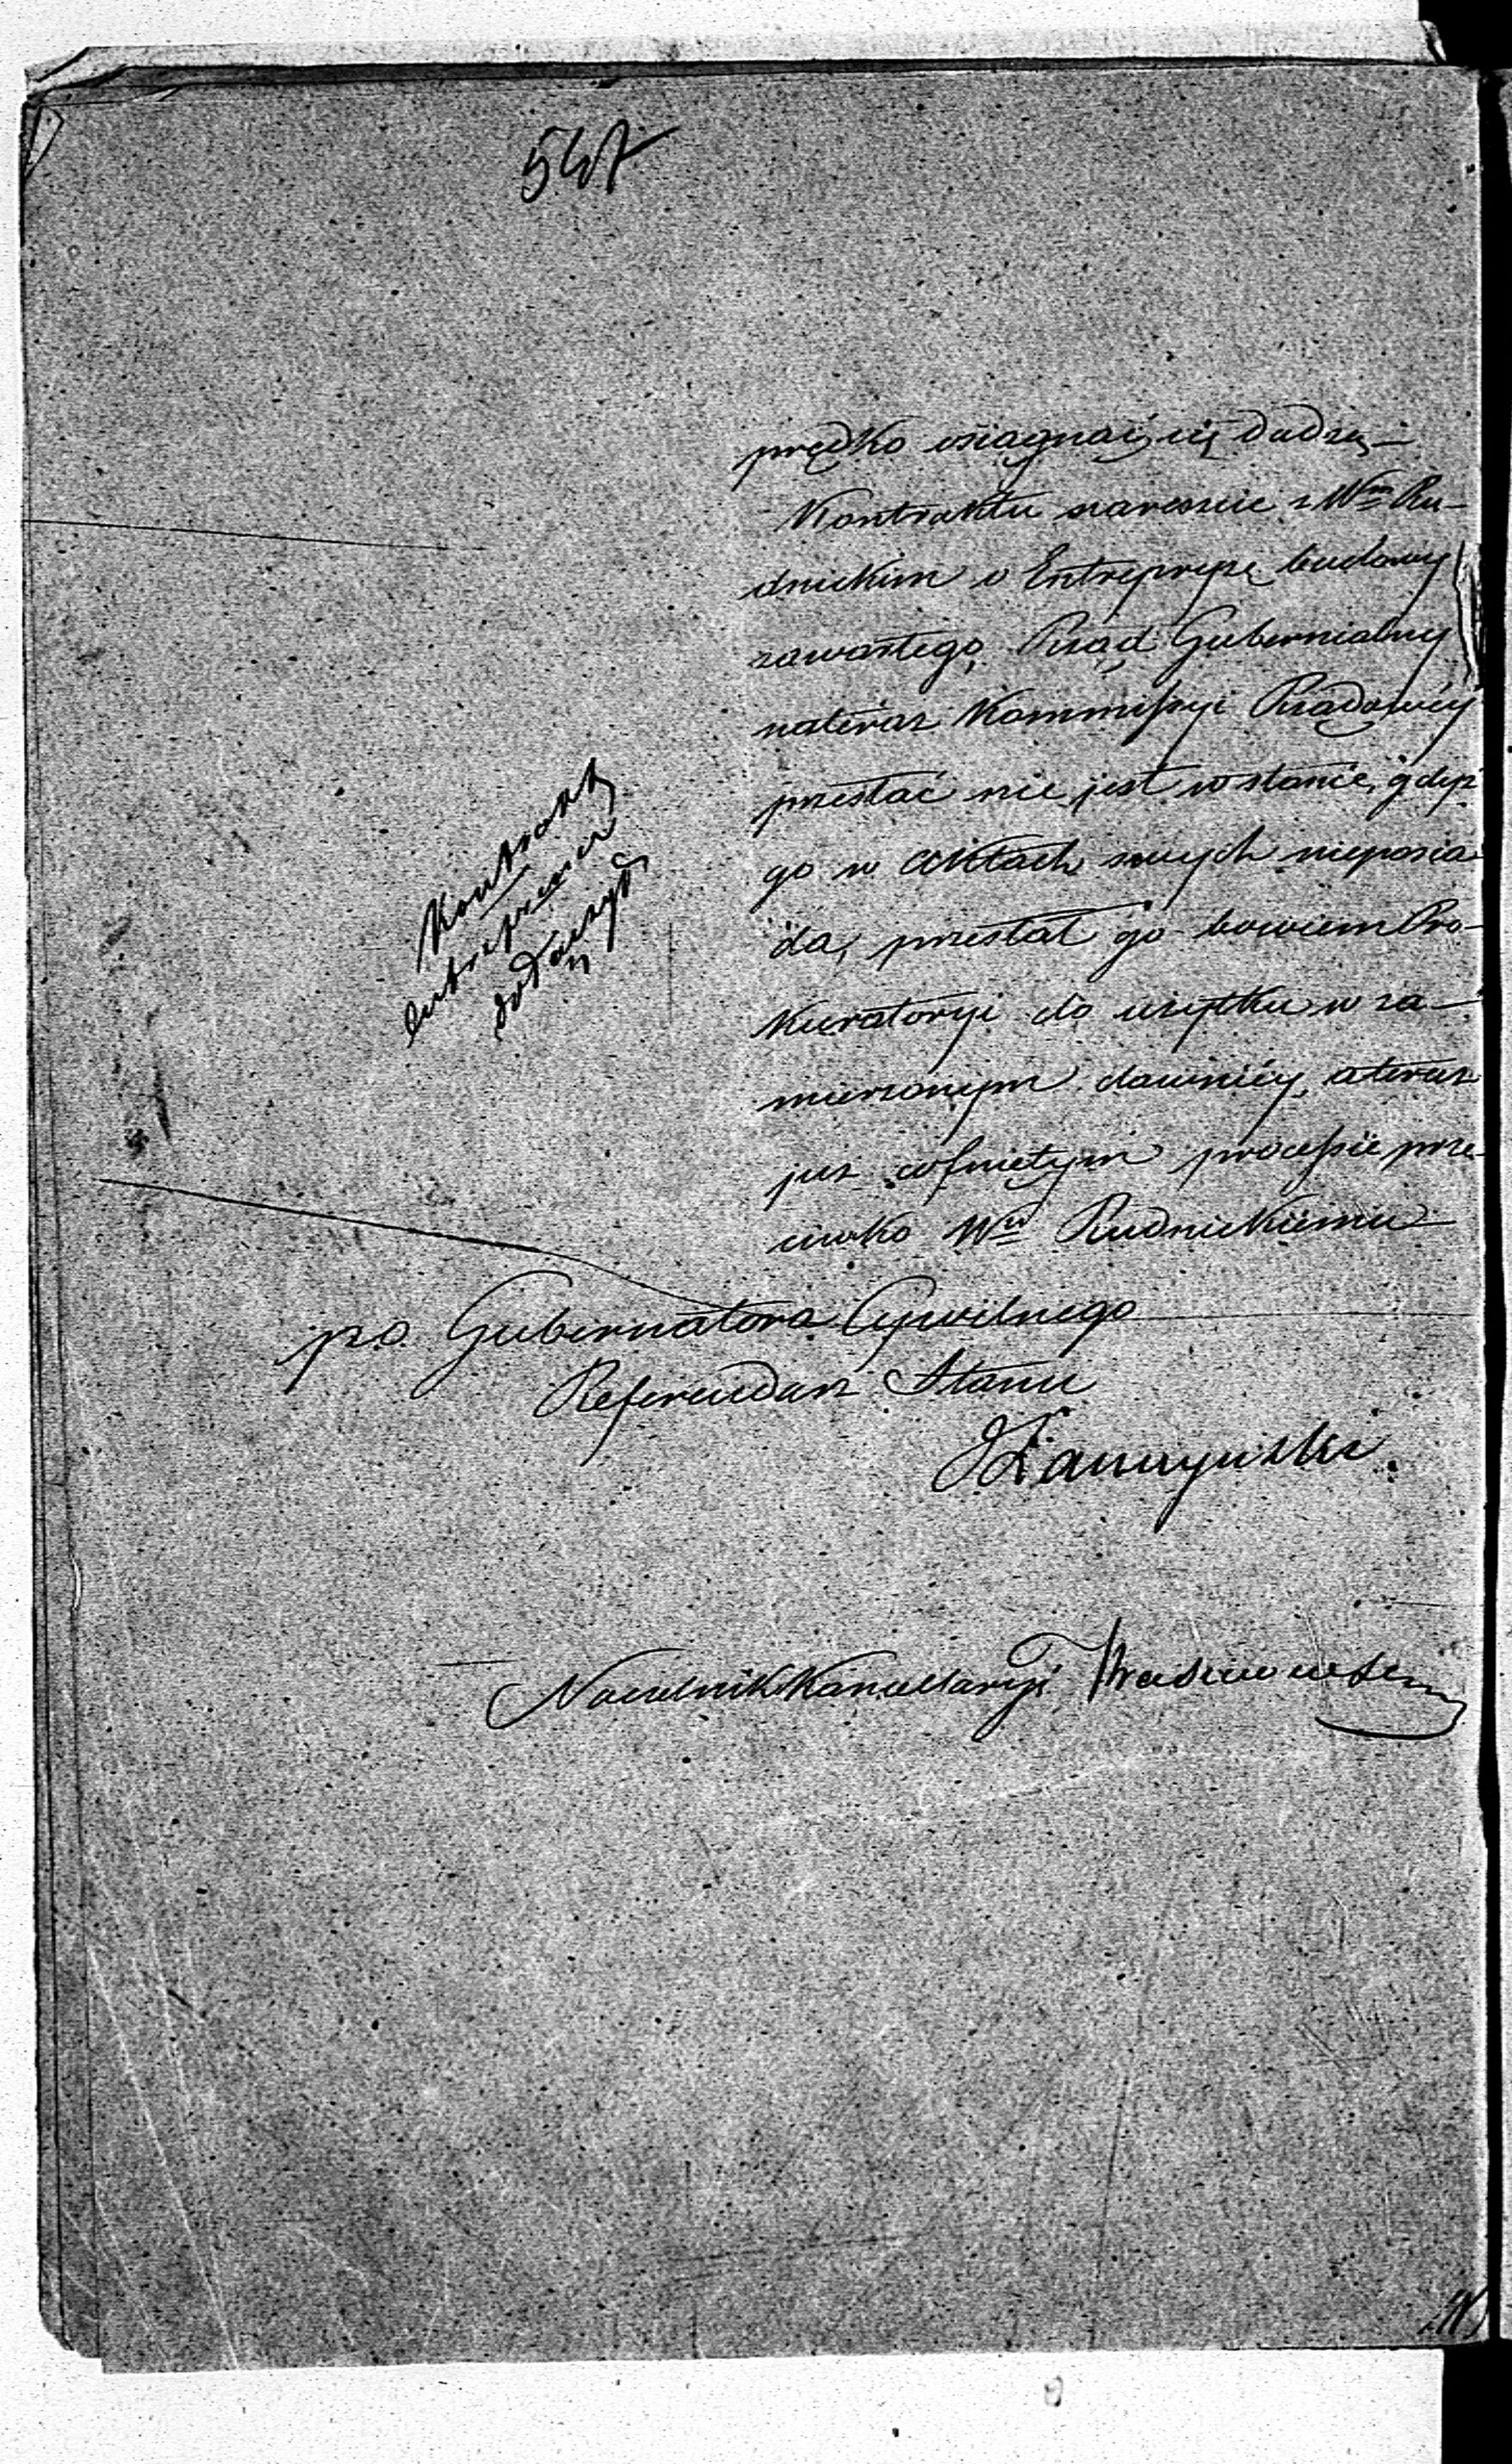 547
prędko osiągnąć się dadzą.—
Kontraktu nareszcie z Wm Ru-
dnickim o Entrepryzę budowy
zawartego, Rząd Gubernialny
nateraz Kommissyi Rządowéy
przesłać nie jest wstanie, gdyż
go w Aktach swych nieposia-
da, przesłał go bowiem Pro-
kuratoryi do użytku w za-
mierzonym dawniéy, a teraz
już cofniętym processie prze-
ciwko Wu Rudnickiemu—
Kontrakt
entrepriser
dołączyć
p.o. Gubernatora Cywilnego
Referendarz Stanu
Naczelnik Kancellaryi